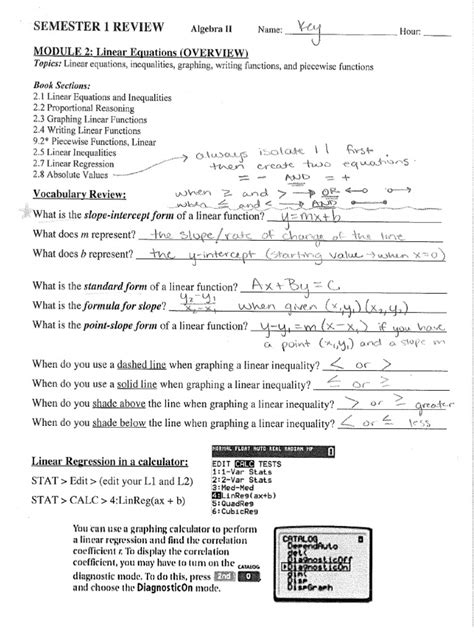 SEMESTER 1 REVIEW Algebra II Name: Key Hour:
MODULE 2: Linear Equations (OVERVIEW)
Topics: Linear equations, inequalities, graphing, writing functions, and piecewise functions
Book Sections:
2.1 Linear Equations and Inequalities
2.2 Proportional Reasoning
2.3 Graphing Linear Functions
2.4 Writing Linear Functions
9.2* Piecewise Functions, Linear
2.5 Linear Inequalities
2.7 Linear Regression
2.8 Absolute Values → always isolate | | first
then create two equations.
= - AND = +
Vocabulary Review: when ≥ and > → OR
when ≤ and < → AND
What is the slope-intercept form of a linear function? y=mx+b
What does m represent? the slope/rate of change of the line
What does b represent? the y-intercept (starting value → when x=0)
What is the standard form of a linear function? Ax+By=C
What is the formula for slope? y₂-y₁/x₂-x₁ when given (x,y,) (x₂,y₂)
What is the point-slope form of a linear function? y-y₁=m(x-x₁) if you have
a point (x₁,y₁) and a slope m
When do you use a dashed line when graphing a linear inequality? < or >
When do you use a solid line when graphing a linear inequality? ≤ or ≥
When do you shade above the line when graphing a linear inequality? > or ≥ greater
When do you shade below the line when graphing a linear inequality? < or ≤ less
Linear Regression in a calculator:
STAT > Edit > (edit your L1 and L2)
STAT > CALC > 4:LinReg(ax + b)
NORMAL FLOAT AUTO REAL RADIAN MP
EDIT CALC TESTS
1:1-Var Stats
2:2-Var Stats
3:Med-Med
4:LinReg(ax+b)
5:QuadReg
6:CubicReg
You can use a graphing calculator to perform
a linear regression and find the correlation
coefficient r. To display the correlation
coefficient, you may have to turn on the CATALOG
diagnostic mode. To do this, press 2nd 0
and choose the DiagnosticOn mode.
CATALOG
DependAuto
det(
DiagnosticOff
DiagnosticOn
dim(
Disp
DispGraph